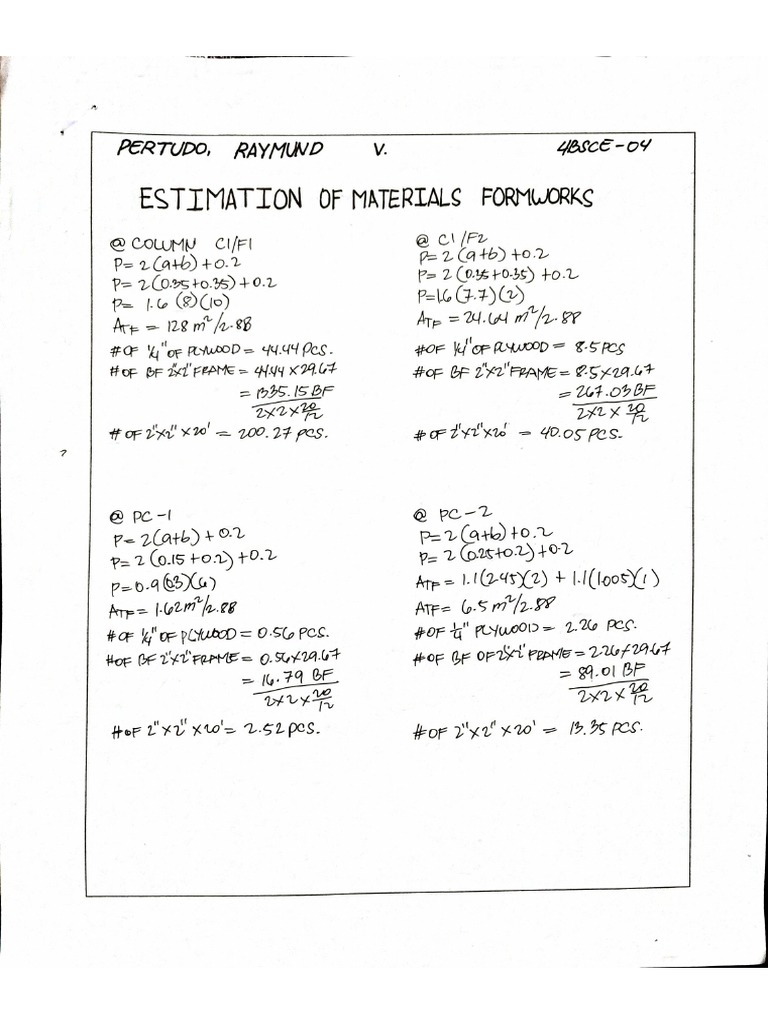 PERTUDO, RAYMUND V. 4BSCE-04
ESTIMATION OF MATERIALS FORMWORKS
@ COLUMN C1/F1
P= 2(a+b)+0.2
P= 2(0.35+0.35)+0.2
P= 1.6 (8)(10)
ATF = 128 m²/2.88
# OF 1/4" OF PLYWOOD = 44.44 PCS.
# OF BF 2"x2" FRAME = 44.44 x 29.67
= 1335.15 BF
2x2x 20/12
# OF 2"x2" x 20' = 200.27 PCS.
@ C1/F2
P= 2(a+b)+0.2
P= 2(0.35+0.35)+0.2
P=1.6(7.7)(2)
ATF = 24.64 m²/2.88
# OF 1/4" OF PLYWOOD = 8.5 PCS
# OF BF 2"x2" FRAME = 8.5x29.67
= 267.03 BF
2x2x 20/12
# OF 2"x2"x20' = 40.05 PCS.
@ PC-1
P=2(a+b)+0.2
P=2(0.15+0.2)+0.2
P=0.9(0.3)(6)
ATF = 1.62m²/2.88
# OF 1/4" OF PLYWOOD = 0.56 PCS.
# OF BF 2"x2" FRAME = 0.56x29.67
= 16.79 BF
2x2x 20/12
# OF 2"x2" x20' = 2.52 PCS.
@ PC-2
P= 2(a+b)+0.2
P= 2(0.25+0.2)+0.2
ATF = 1.1(2.45)(2) + 1.1(1.005)(1)
ATF = 6.5 m²/2.88
# OF 1/4" PLYWOOD = 2.26 PCS.
# OF BF OF 2"x2" FRAME = 2.26x29.67
= 89.01 BF
2x2x 20/12
# OF 2"x2" x 20' = 13.35 PCS.